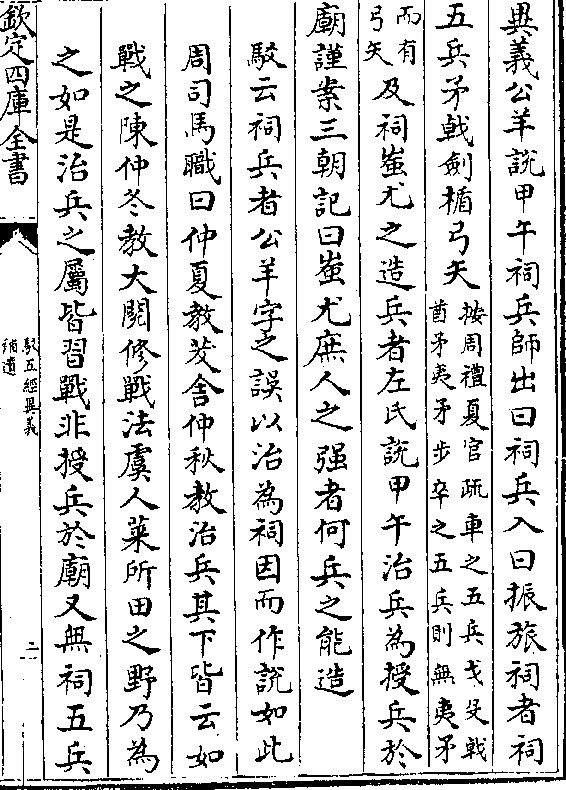 異義公羊說甲午祠兵師出曰祠兵入曰振旅祠者祠
五兵矛㦸劍楯弓矢按周禮夏官疏車之五兵戈殳㦸
酋矛夷矛步卒之五兵則無夷矛
而有
弓矢及祠蚩尤之造兵者左氏說甲午治兵為授兵於
廟謹案三朝記曰蚩尤庶人之强者何兵之能造
駮云祠兵者公羊字之誤以治為祠因而作說如此
周司馬職曰仲夏教茇舍仲秋教治兵其下皆云如
戰之陳仲冬教大閱修戰法虞人萊所田之野乃為
之如是治兵之屬皆習戰非授兵於廟又無祠五兵
欽定四庫全書
駮五經異義
補遺
二